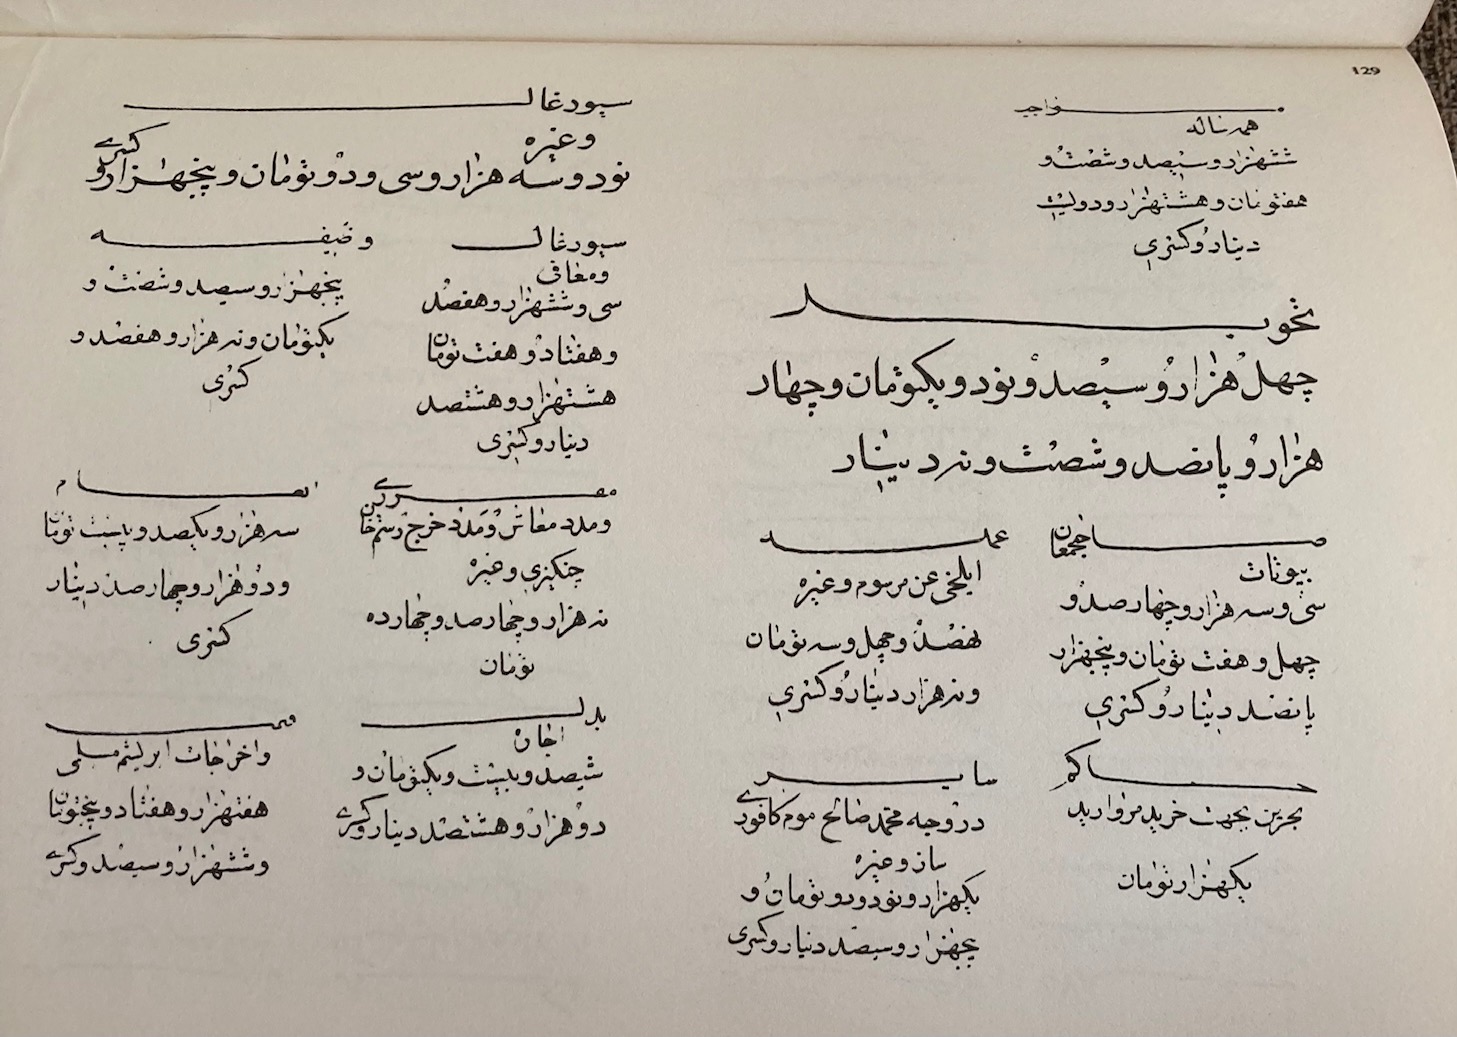 129
مواجب
همه ساله
ششهزار و سیصد و شصت و
هفتومان و هشتهزار و دویست
دینار و کسری
تحویل
چهل هزار و سیصد و نود و یکتومان و چهار
هزار و پانصد و شصت و نه دینار
صاحبجمعان
بیوتات
سی و سه هزار و چهارصد و
چهل و هفت تومان و پنجهزار
پانصد دینار و کسری
عمله
ایلخی عن مرسوم و غیره
نهصد و چهل و سه تومان
و نه هزار دینار و کسری
حاکم
بحرین بجهت خرید مروارید
یکهزار تومان
سایر
در وجه محمد صالح موم کافوری
ساز و غیره
یکهزار و نود و دو تومان و
پنجهزار و سیصد دینار و کسری
سیورغال
و غیره
نود و سه هزار و سی و دو تومان و پنجهزار و کسری
سیورغال
و معافی
سی و ششهزار و هفصد
و هفتاد و هفت تومان
هشتهزار و هشتصد
دینار و کسری
وظیفه
پنجهزار و سیصد و شصت و
یکتومان و نه هزار و هفصد و
کسری
مقرری
و مدد معاش و مدد خرج رستم خان
چنگیزی و غیره
نه هزار و چهارصد و چهارده
تومان
انعام
سه هزار و یکصد و بیست تومان
و دو هزار و چهارصد دینار
کسری
بدل
اجان
ششصد و بیست و یکتومان و
دو هزار و هشتصد دینار و کسری
قیمت
و اخراجات ابریشم
هفتهزار و هفتاد و پنجتومان
و ششهزار و سیصد و کسری